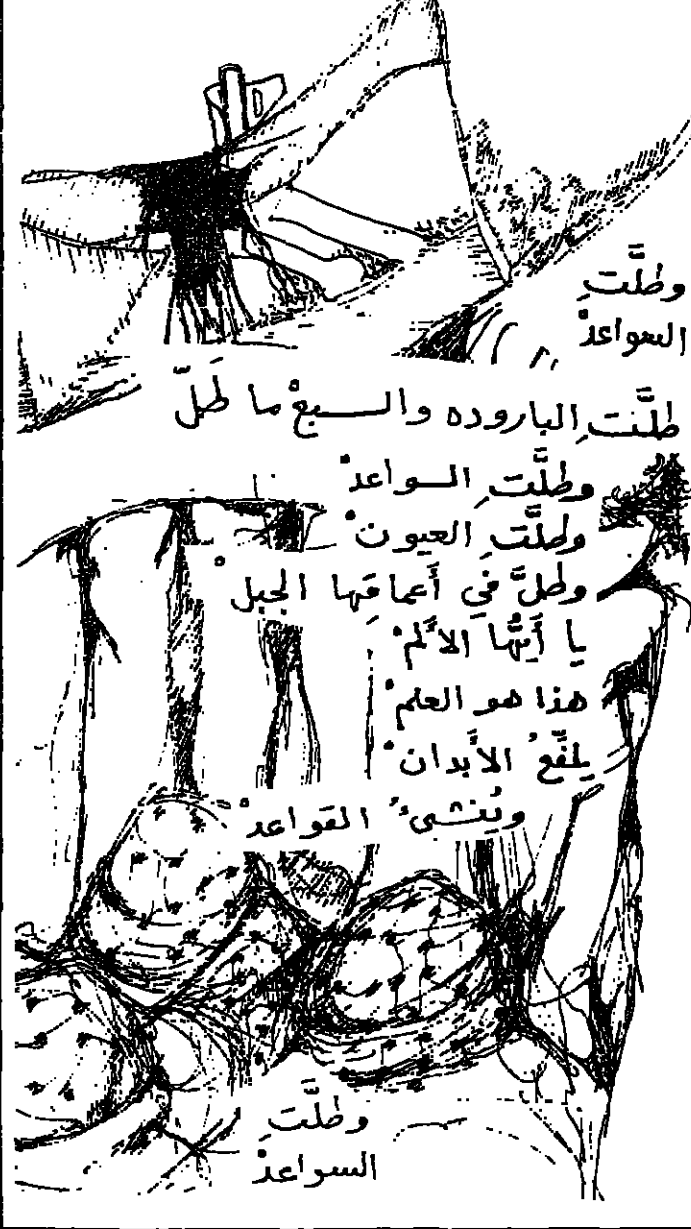 وطلَّتِ
السواعدْ
طلَّتِ الباروده والسبعْ ما طَلّ
وطلَّتِ السواعدْ
وطلَّتِ العيونْ
وطلَّ في أعماقِها الجبلْ
يا أيُّها الألمْ
هذا هو العلمْ
يلفّعُ الأبدانْ
ويُنشىءُ القواعدْ
وطلَّتِ
السواعدْ